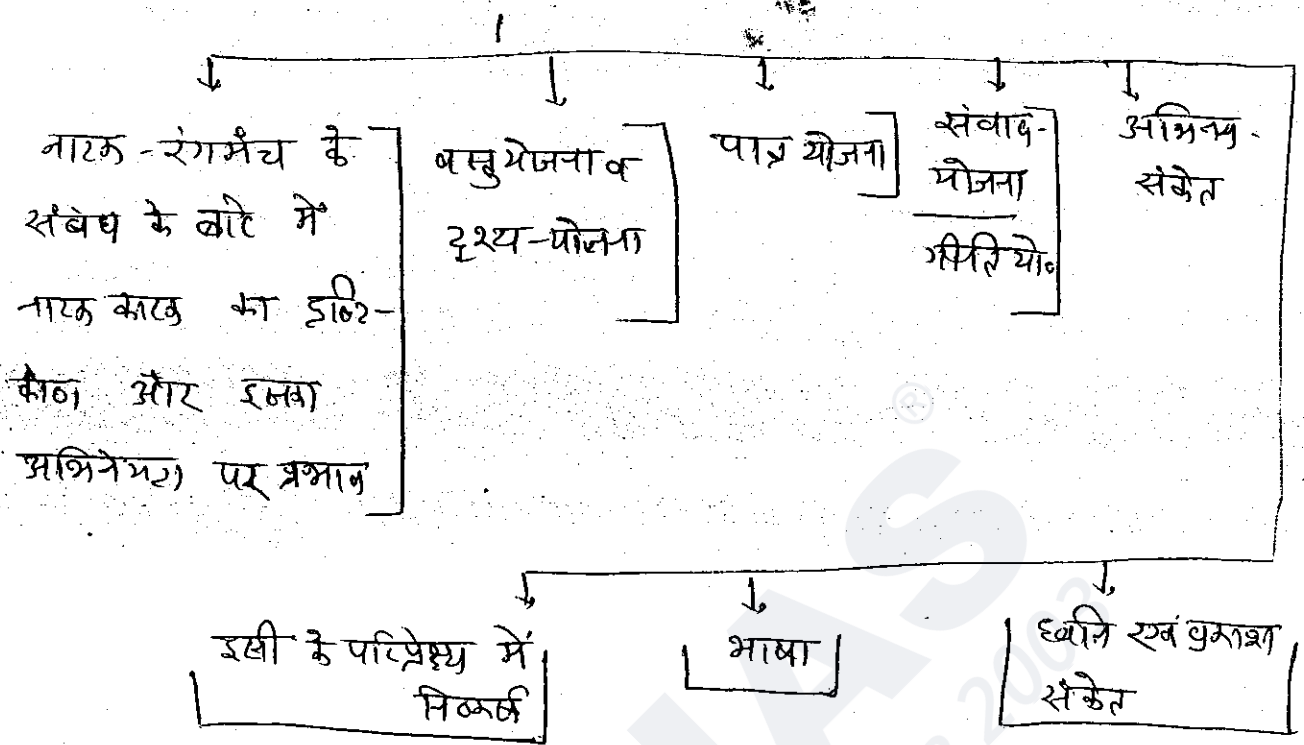 नाटक-रंगमंच के
संबंध के बारे में
नाटककारक का दृष्टि-
कोण और इनका
अभिनेयता पर प्रभाव
वस्तु योजना व
दृश्य-योजना
पात्र योजना
संवाद-
योजना
गीति यो०
अभिनय-
संकेत
इसी के परिप्रेक्ष्य में
निष्कर्ष
भाषा
ध्वनि एवं प्रकाश
संकेत
IAS
2003
®